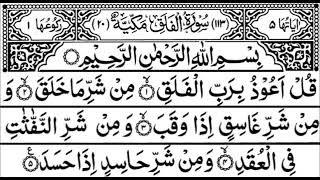 اٰیَاتُهَا ۵ (۱۱۳) سُوْرَةُ الْفَلَقِ مَكِّیَّةٌ (۲۰) رُكُوْعُهَا ۱
بِسْمِ اللّٰهِ الرَّحْمٰنِ الرَّحِیْمِ
قُلْ اَعُوْذُ بِرَبِّ الْفَلَقِ ۙ۱ مِنْ شَرِّ مَا خَلَقَ ۙ۲ وَ
مِنْ شَرِّ غَاسِقٍ اِذَا وَقَبَ ۙ۳ وَ مِنْ شَرِّ النَّفّٰثٰتِ
فِی الْعُقَدِ ۙ۴ وَ مِنْ شَرِّ حَاسِدٍ اِذَا حَسَدَ ۠۵